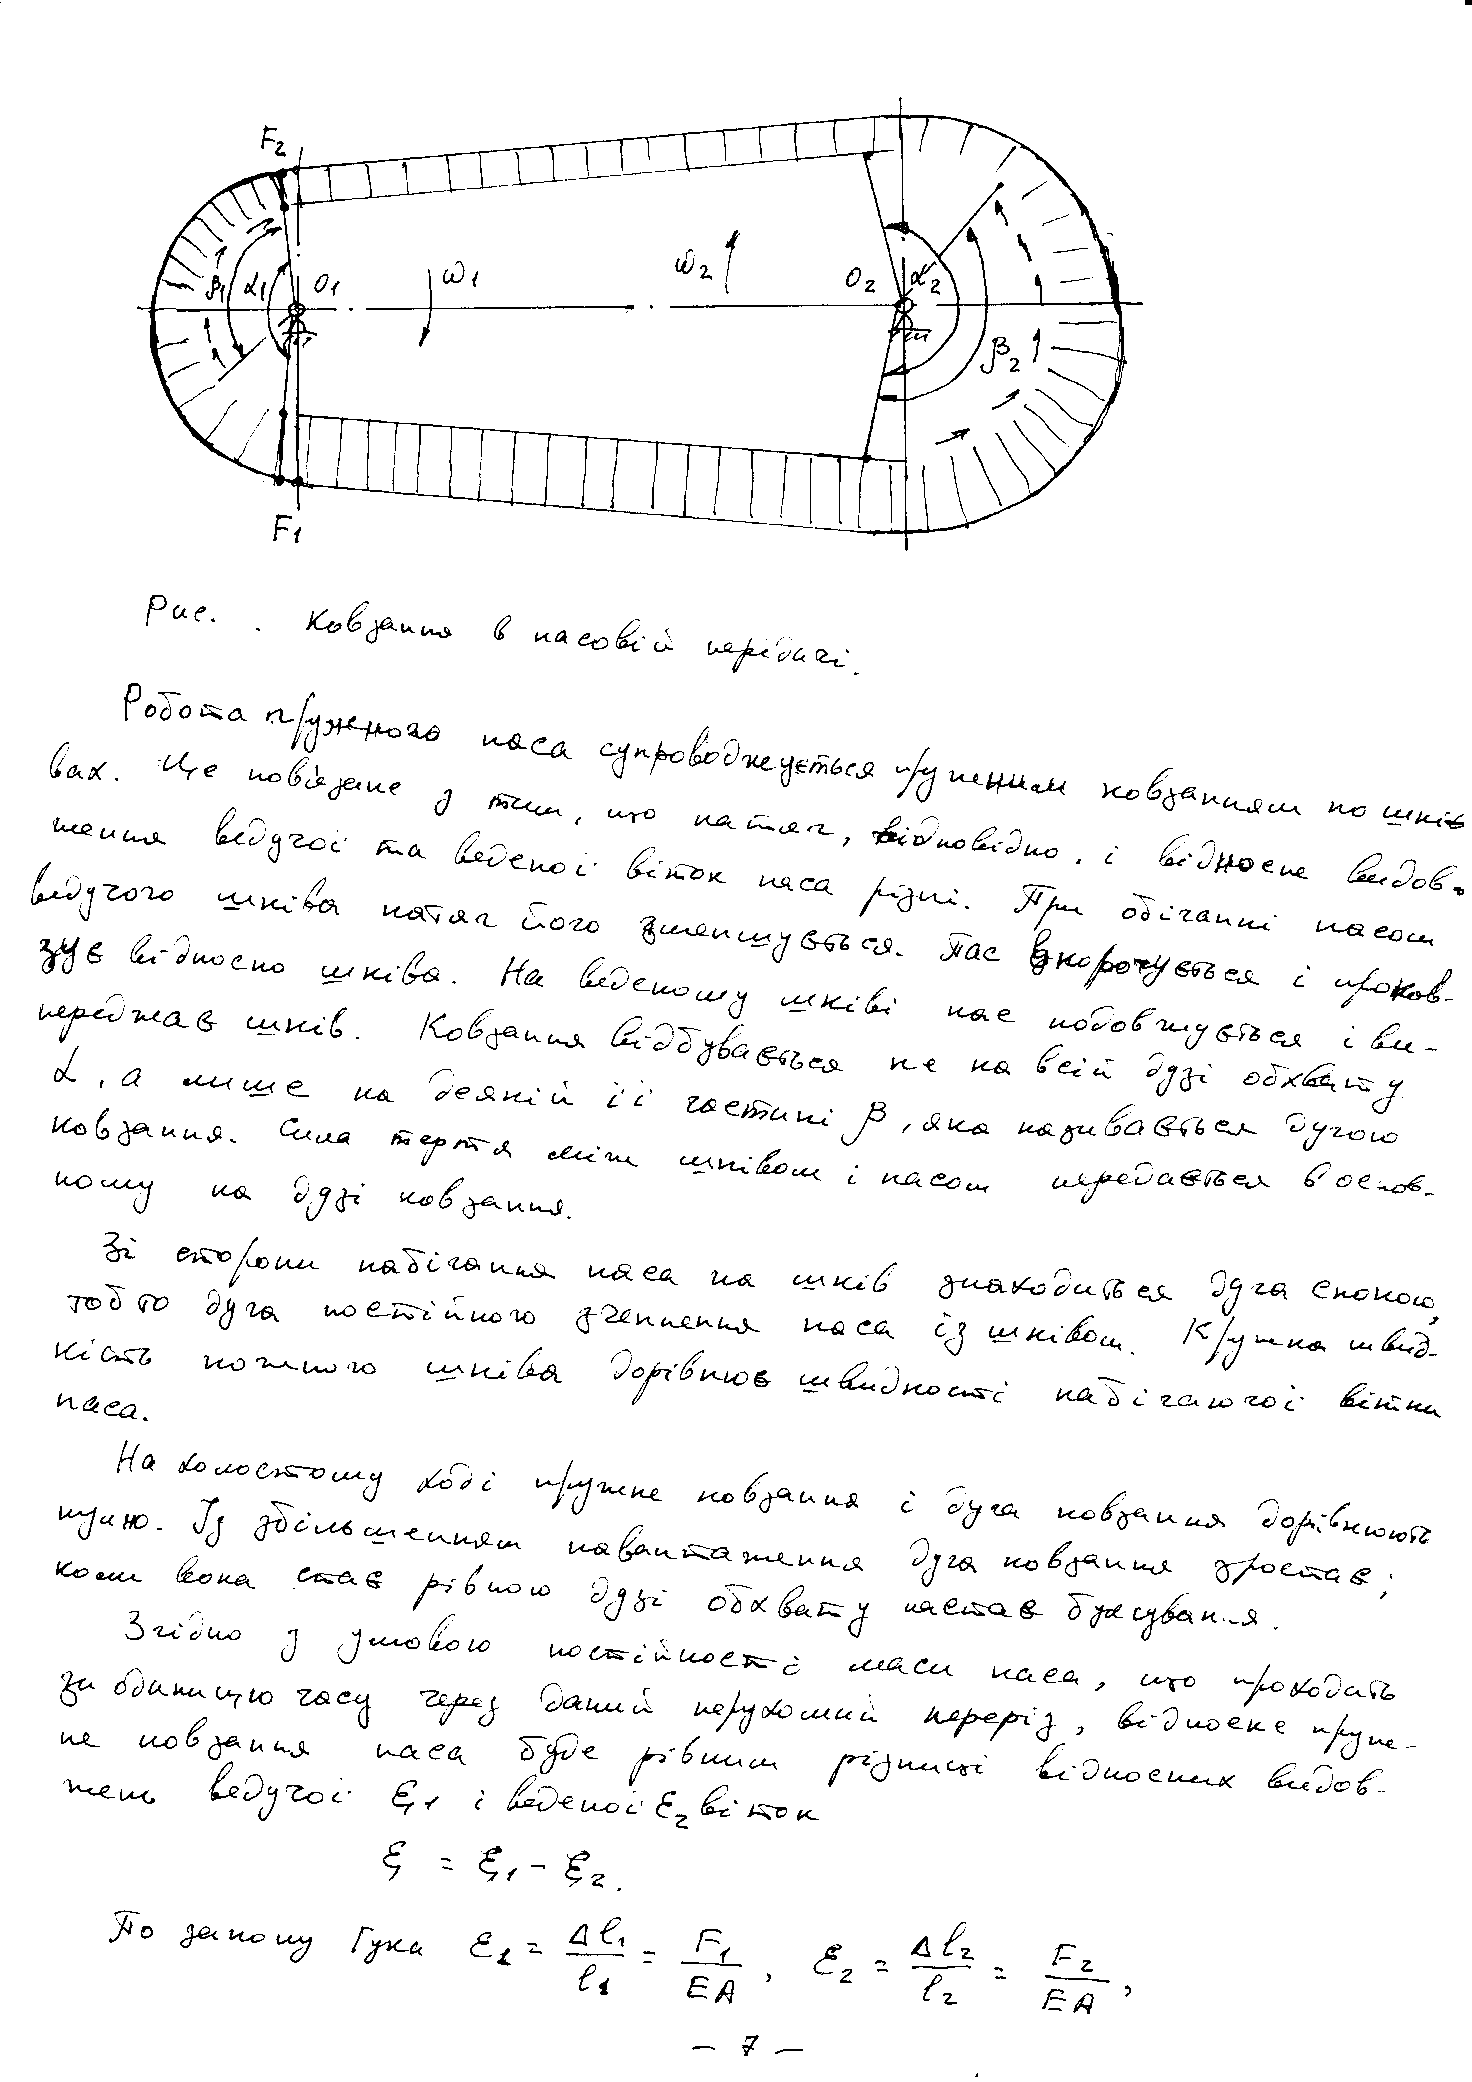 F₂
β₁ α₁ O₁ ω₁ ω₂ O₂ α₂
β₂
F₁
Рис. . Ковзання в пасовій передачі.
Робота пружного паса супроводжується пружним ковзанням по шкі-
вах. Це пов'язане з тим, що натяг, відповідно, і відносне видов-
ження ведучої та веденої віток паса різні. При обіганні пасом
ведучого шківа натяг його зменшується. Пас вкорочується і проков-
зує відносно шківа. На веденому шківі пас подовжується і ви-
переджає шків. Ковзання відбувається не на всій дузі обхвату
α, а лише на деякій її частині β, яка називається дугою
ковзання. Сила тертя між шківом і пасом передається в основ-
ному на дузі ковзання.
Зі сторони набігання паса на шків знаходиться дуга спокою,
тобто дуга постійного зчеплення паса із шківом. Кружна швид-
кість кожного шківа дорівнює швидкості набігаючої вітки
паса.
На холостому ході пружне ковзання і дуга ковзання дорівнюють
нулю. Із збільшенням навантаження дуга ковзання зростає;
коли вона стає рівною дузі обхвату настає буксування.
Згідно з умовою постійності маси паса, що проходить
за одиницю часу через даний нерухомий переріз, відносне пруж-
не ковзання паса буде рівним різниці відносних видов-
жень ведучої ξ₁ і веденої ε₂ віток
ξ = ξ₁ - ξ₂.
По закону Гука ε₁ = Δl₁/l₁ = F₁/EA, ε₂ = Δl₂/l₂ = F₂/EA,
– 7 –